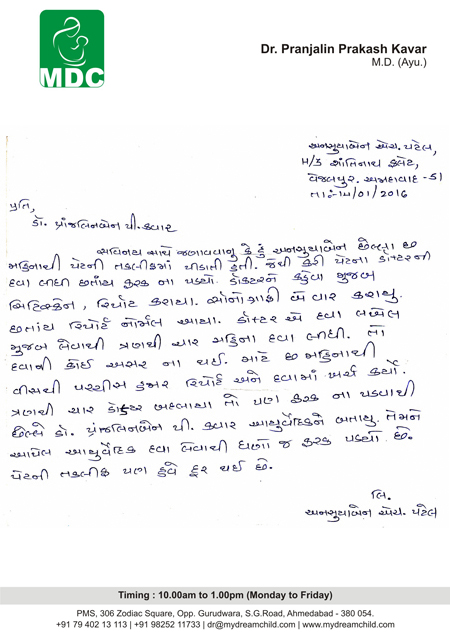 MDC
Dr. Pranjalin Prakash Kavar
M.D. (Ayu.)
અનસુયાબેન એચ. પટેલ,
H/3 શાંતિનાથ ફ્લેટ,
વેજલપુર. અમદાવાદ - ૬૧
તા:- /01/2016
પ્રતિ,
ડૉ. પ્રાંજલિનબેન પી. કવાર
સવિનય સાથે જણાવવાનુ કે હું અનસુયાબેન છેલ્લા છ
મહિનાથી પેટની તકલીફમાં પીડાતી હતી. જેથી ફરી પેટના ડોક્ટરની
દવા લીધી છતાંય ફરક ના પડયો. ડોક્ટરને કહેવા મુજબ
સિટિસ્કેન, રિપોટ કરાયા. સોનોગ્રાફી બે વાર કરાયુ.
છતાંય રિપોર્ટ નોર્મલ આયા. ડોક્ટર એ દવા લખેલ
મુજબ લેવાથી ત્રણથી ચાર મહિના દવા લીધી. તો
દવાની કોઈ અસર ના થઈ. માટે છ મહિનાથી
વીસથી પચ્ચીસ હજાર રિપોર્ટ અને દવામાં ખર્ચ કર્યો.
ત્રણથી ચાર ડોક્ટર બદલાયા તો પણ ફરક ના પડવાથી
છેલ્લે ડો. પ્રાંજલિનબેન પી. કવાર આયુર્વેદિકને બતાયુ. તેમને
આપેલ આયુર્વેદિક દવા લેવાથી ઘણો જ ફરક પડયો છે.
પેટની તકલીફ પણ હવે દૂર થઈ છે.
લિ.
અનસુયાબેન એચ. પટેલ
Timing : 10.00am to 1.00pm (Monday to Friday)
PMS, 306 Zodiac Square, Opp. Gurudwara, S.G.Road, Ahmedabad - 380 054.
+91 79 402 13 113 | +91 98252 11733 | dr@mydreamchild.com | www.mydreamchild.com